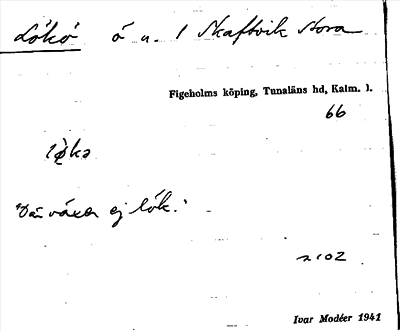 Lökö ö u. 1 Skaftvik Stora
Figeholms köping, Tunaläns hd, Kalm. l.
66
"Där växer ej lök."
2102
Ivar Modéer 1941